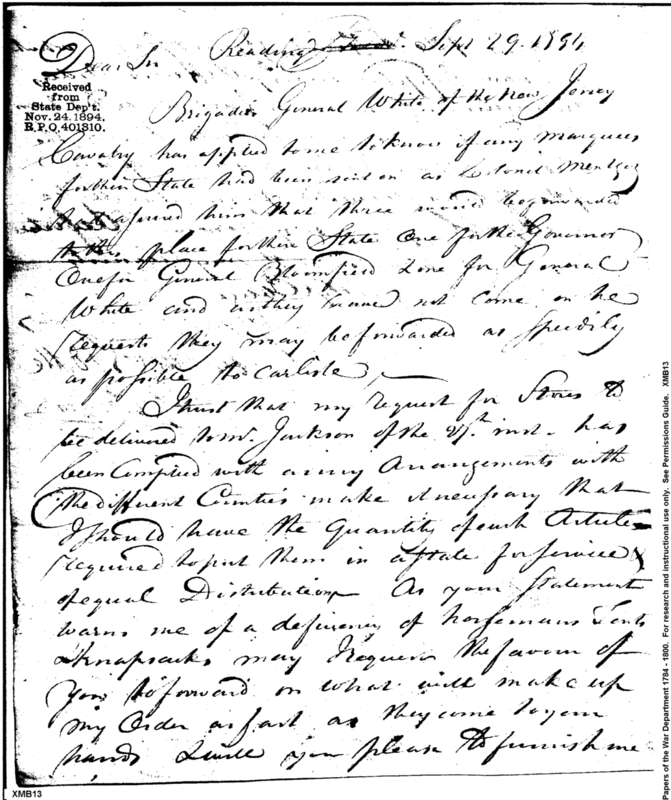 Reading Sept 29. 1894
Dear Sir
Received
from
State Dep't.
Nov. 24. 1894.
R.P.O. 401310.
Brigadier General White of the New Jersey
Cavalry has applied to me to know if any marquees
for their State had been sent on as Colonel Mentges
had assured him that three would be forwarded
to this place for their State One for the Governor
One for General Bloomfield & one for General
White and as they have not come on he
requests they may be forwarded as speedily
as possible to Carlisle,—
I trust that my request for Stores to
be delivered to Mr. Jackson of the 27th inst. has
been Complied with as my Arangements with
the different Counties make it necessary that
I should have the Quantity of each Article
required to put them in a state for Service &
of equal Distribution As your Statement
warns me of a deficiency of horsemans Tents
& Knapsacks may I request the favour of
you to forward on what will make up
my Order as fast as they come to your
hands & will you please to furnish me
XMB13
Papers of the War Department 1784 - 1800. For research and instructional use only. See Permissions Guide. XMB13